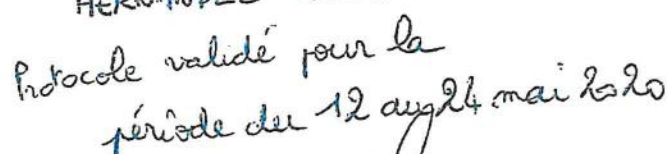 Protocole validé pour la
période du 12 au 24 mai 2020